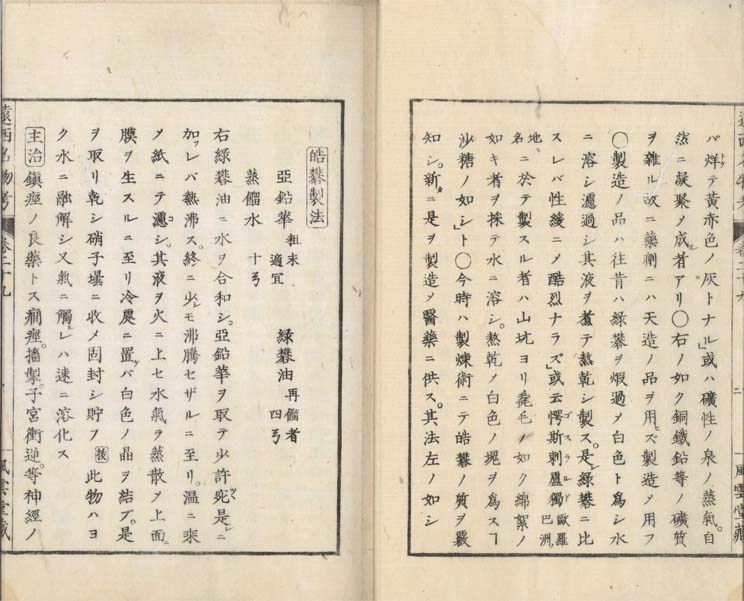 バ烊テ黄赤色ノ灰トナル」或ハ礦性ノ泉ノ蒸氣。自
然ニ凝聚メ成ル者アリ〇右ノ如ク銅鐵鉛等ノ礦質
ヲ雜ル故ニ藥劑ニハ天造ノ品ヲ用ヒズ製造メ用フ
〇製造ノ品ハ往昔ハ綠礬ヲ煆過メ白色ト爲シ水
ニ溶シ濾過シ其液ヲ煮テ熬乾シ製ス。是レ綠礬ニ比
スレバ性緩ニメ酷烈ナラズ」或云愕斯剌盧獨ゴスラルド歐羅巴洲
地名ニ於テ製スル者ハ山坑ヨリ毫毛ノ如ク綿絮ノ
如キ者ヲ採テ水ニ溶シ。熬乾メ白色ノ塊ヲ爲スヿ
沙糖ノ如シ」ト〇今時ハ製煉術ニテ皓礬ノ質ヲ覈
知シ。新ニ是ヲ製造メ醫藥ニ供ス。其法左ノ如シ
皓礬製法
亞鉛華 粗末適宜 綠礬油 再餾者四ヲ
蒸餾水 十ヲ
右綠礬油ニ水ヲ合和シ。亞鉛華ヲ取テ少許宛是レニ
加フレバ熱沸ス。終ニ少シモ沸騰セザルニ至リ。温ニ乘
メ紙ニテ濾シ。其液ヲ火ニ上セ水氣ヲ蒸散メ上面ニ
膜ヲ生スルニ至リ冷處ニ置バ白色ノ晶ヲ結ブ。是
ヲ取リ乾シ硝子壜ニ收メ固封シ貯フ 按 此物ハヨ
ク水ニ融解シ又氣ニ觸レハ速ニ溶化ス
主治 鎭痙ノ良藥トス癇痙。搐掣。子宮衝逆。等神經ノ
遠西名物考 卷二十九
風雲堂藏
二
風雲堂藏